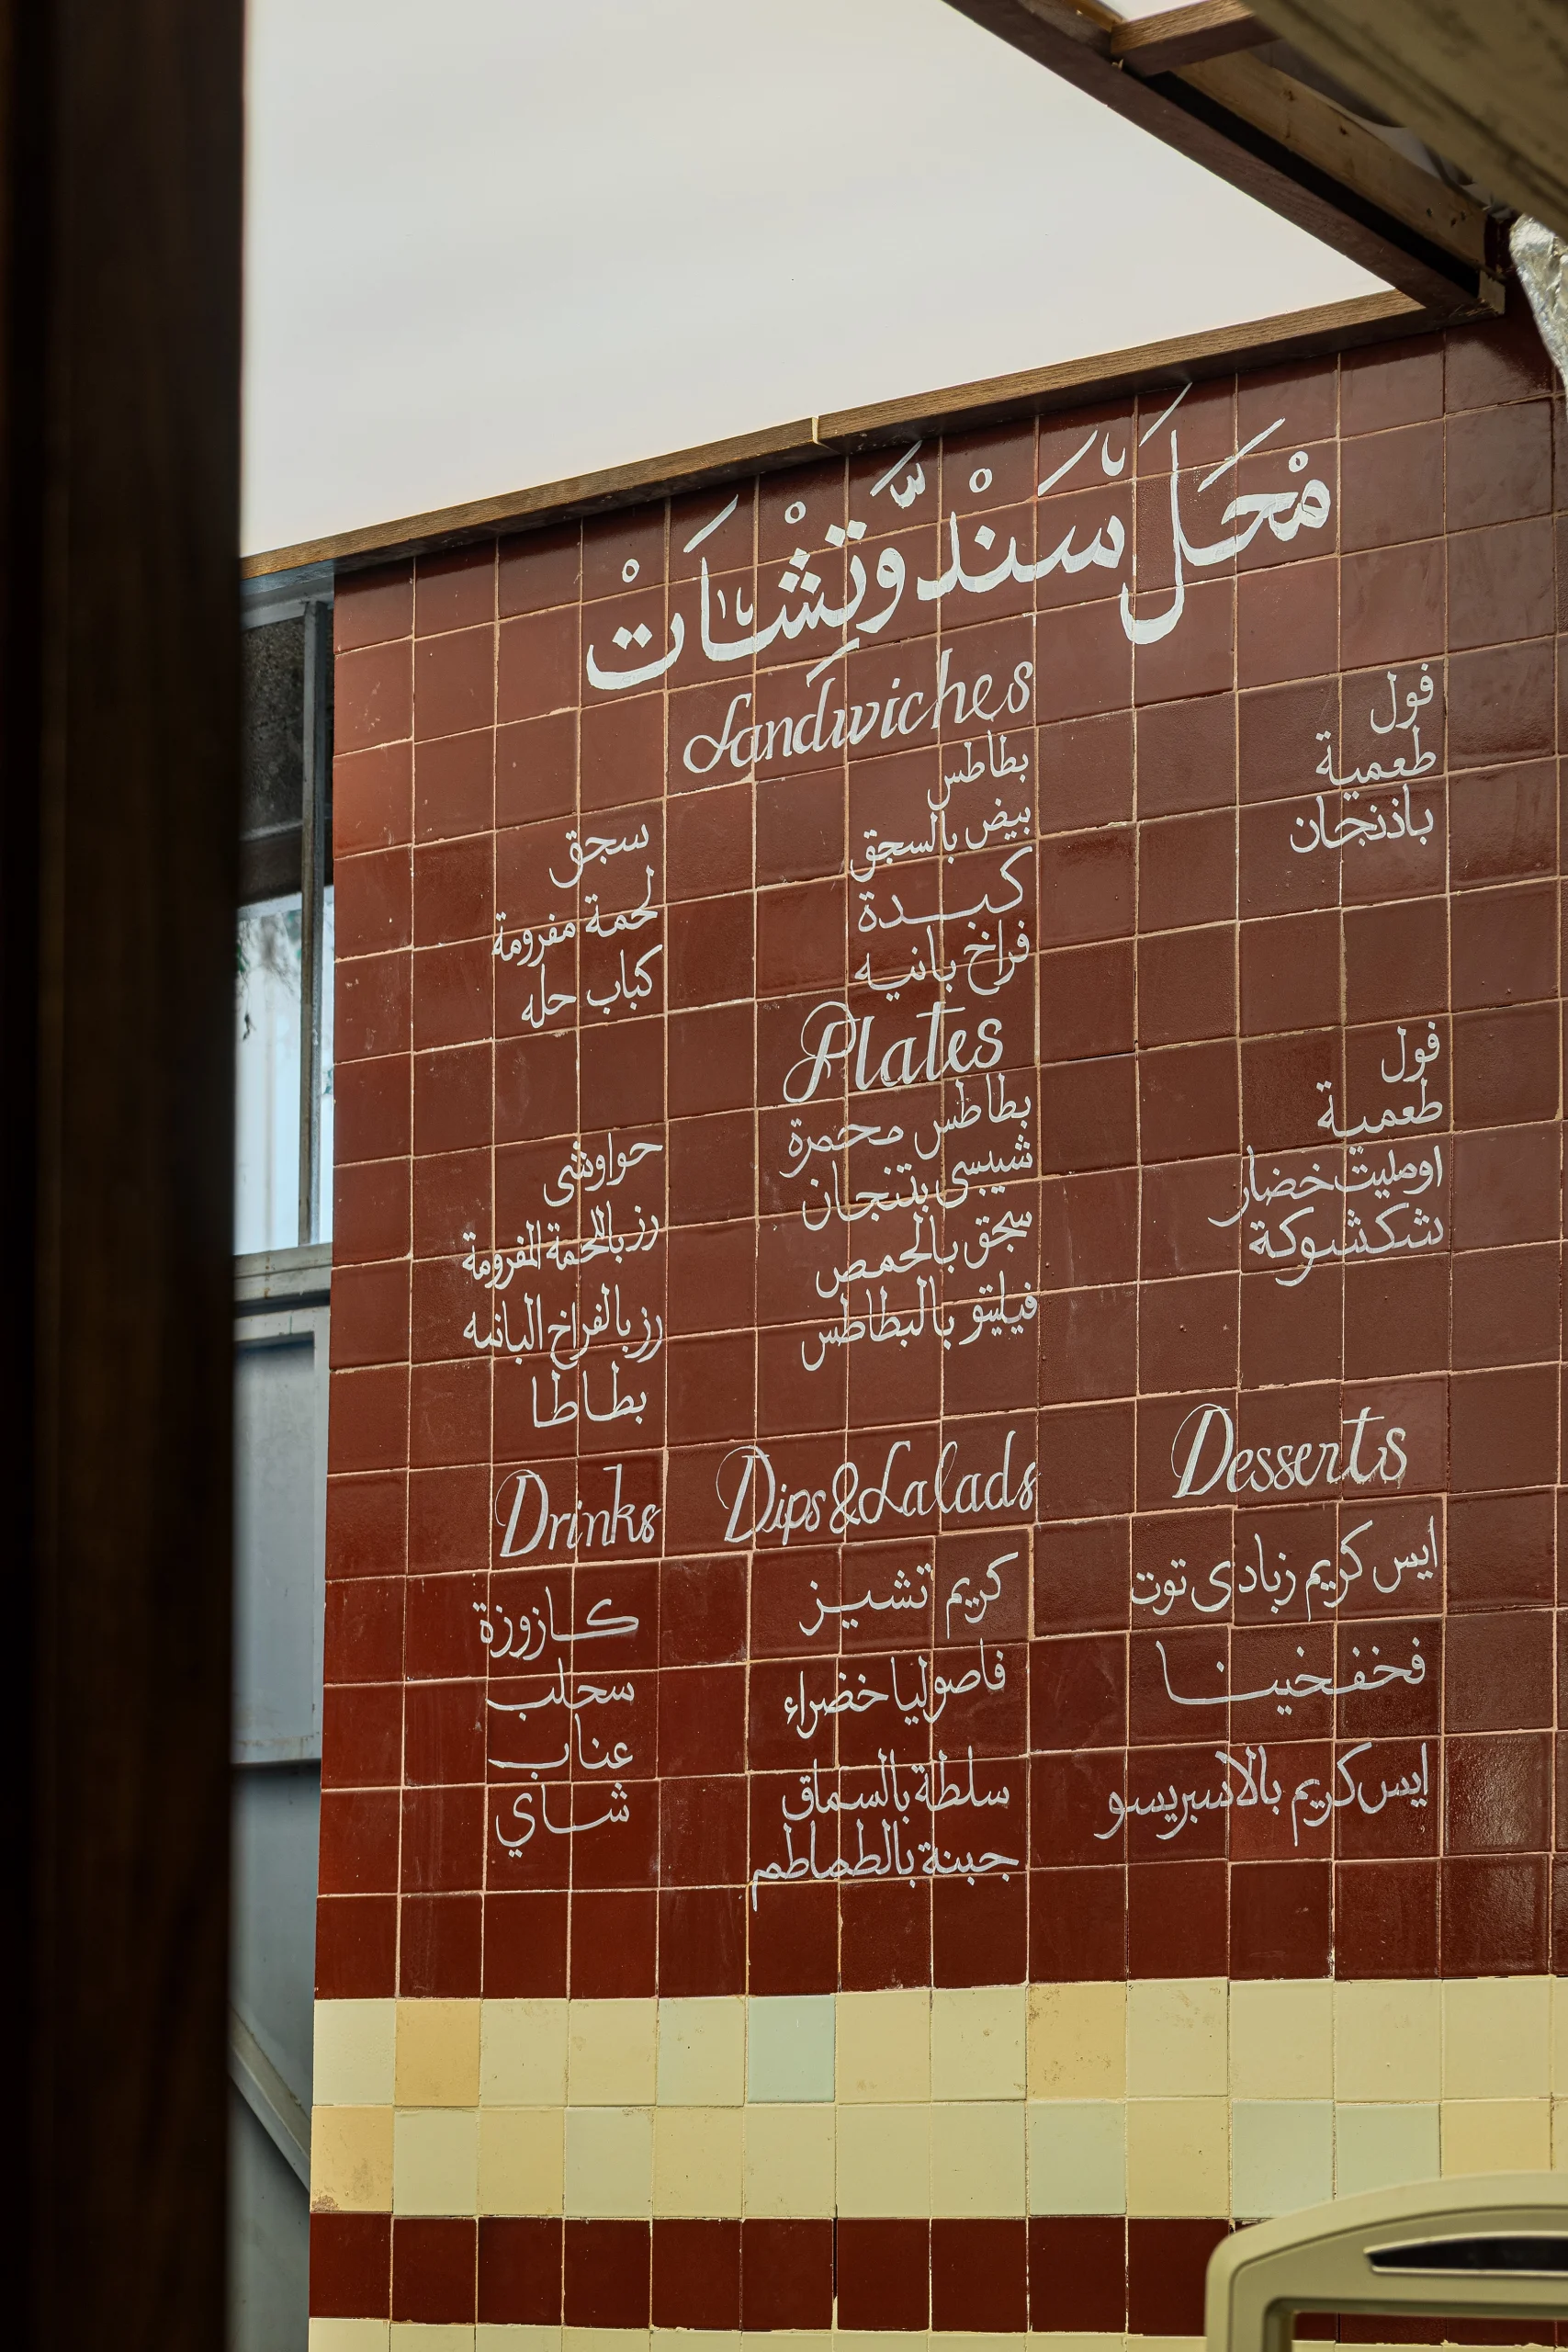 محل سندوتشات
Sandwiches
فول
طعمية
باذنجان
بطاطس
بيض بالسجق
كبدة
فراخ بانيه
سجق
لحمة مفرومة
كباب حله
Plates
فول
طعمية
اومليت خضار
شكشوكة
بطاطس محمرة
شيبسى بتنجان
سجق بالحمص
فيليتو بالبطاطس
حواوشى
رز باللحمة المفرومة
رز بالفراخ البانيه
بطاطا
Desserts
ايس كريم زبادى توت
فخفخينا
ايس كريم بالاسبريسو
Dips & Salads
كريم تشيز
فاصوليا خضراء
سلطة بالسماق
جبنة بالطماطم
Drinks
كازوزة
سحلب
عناب
شاي